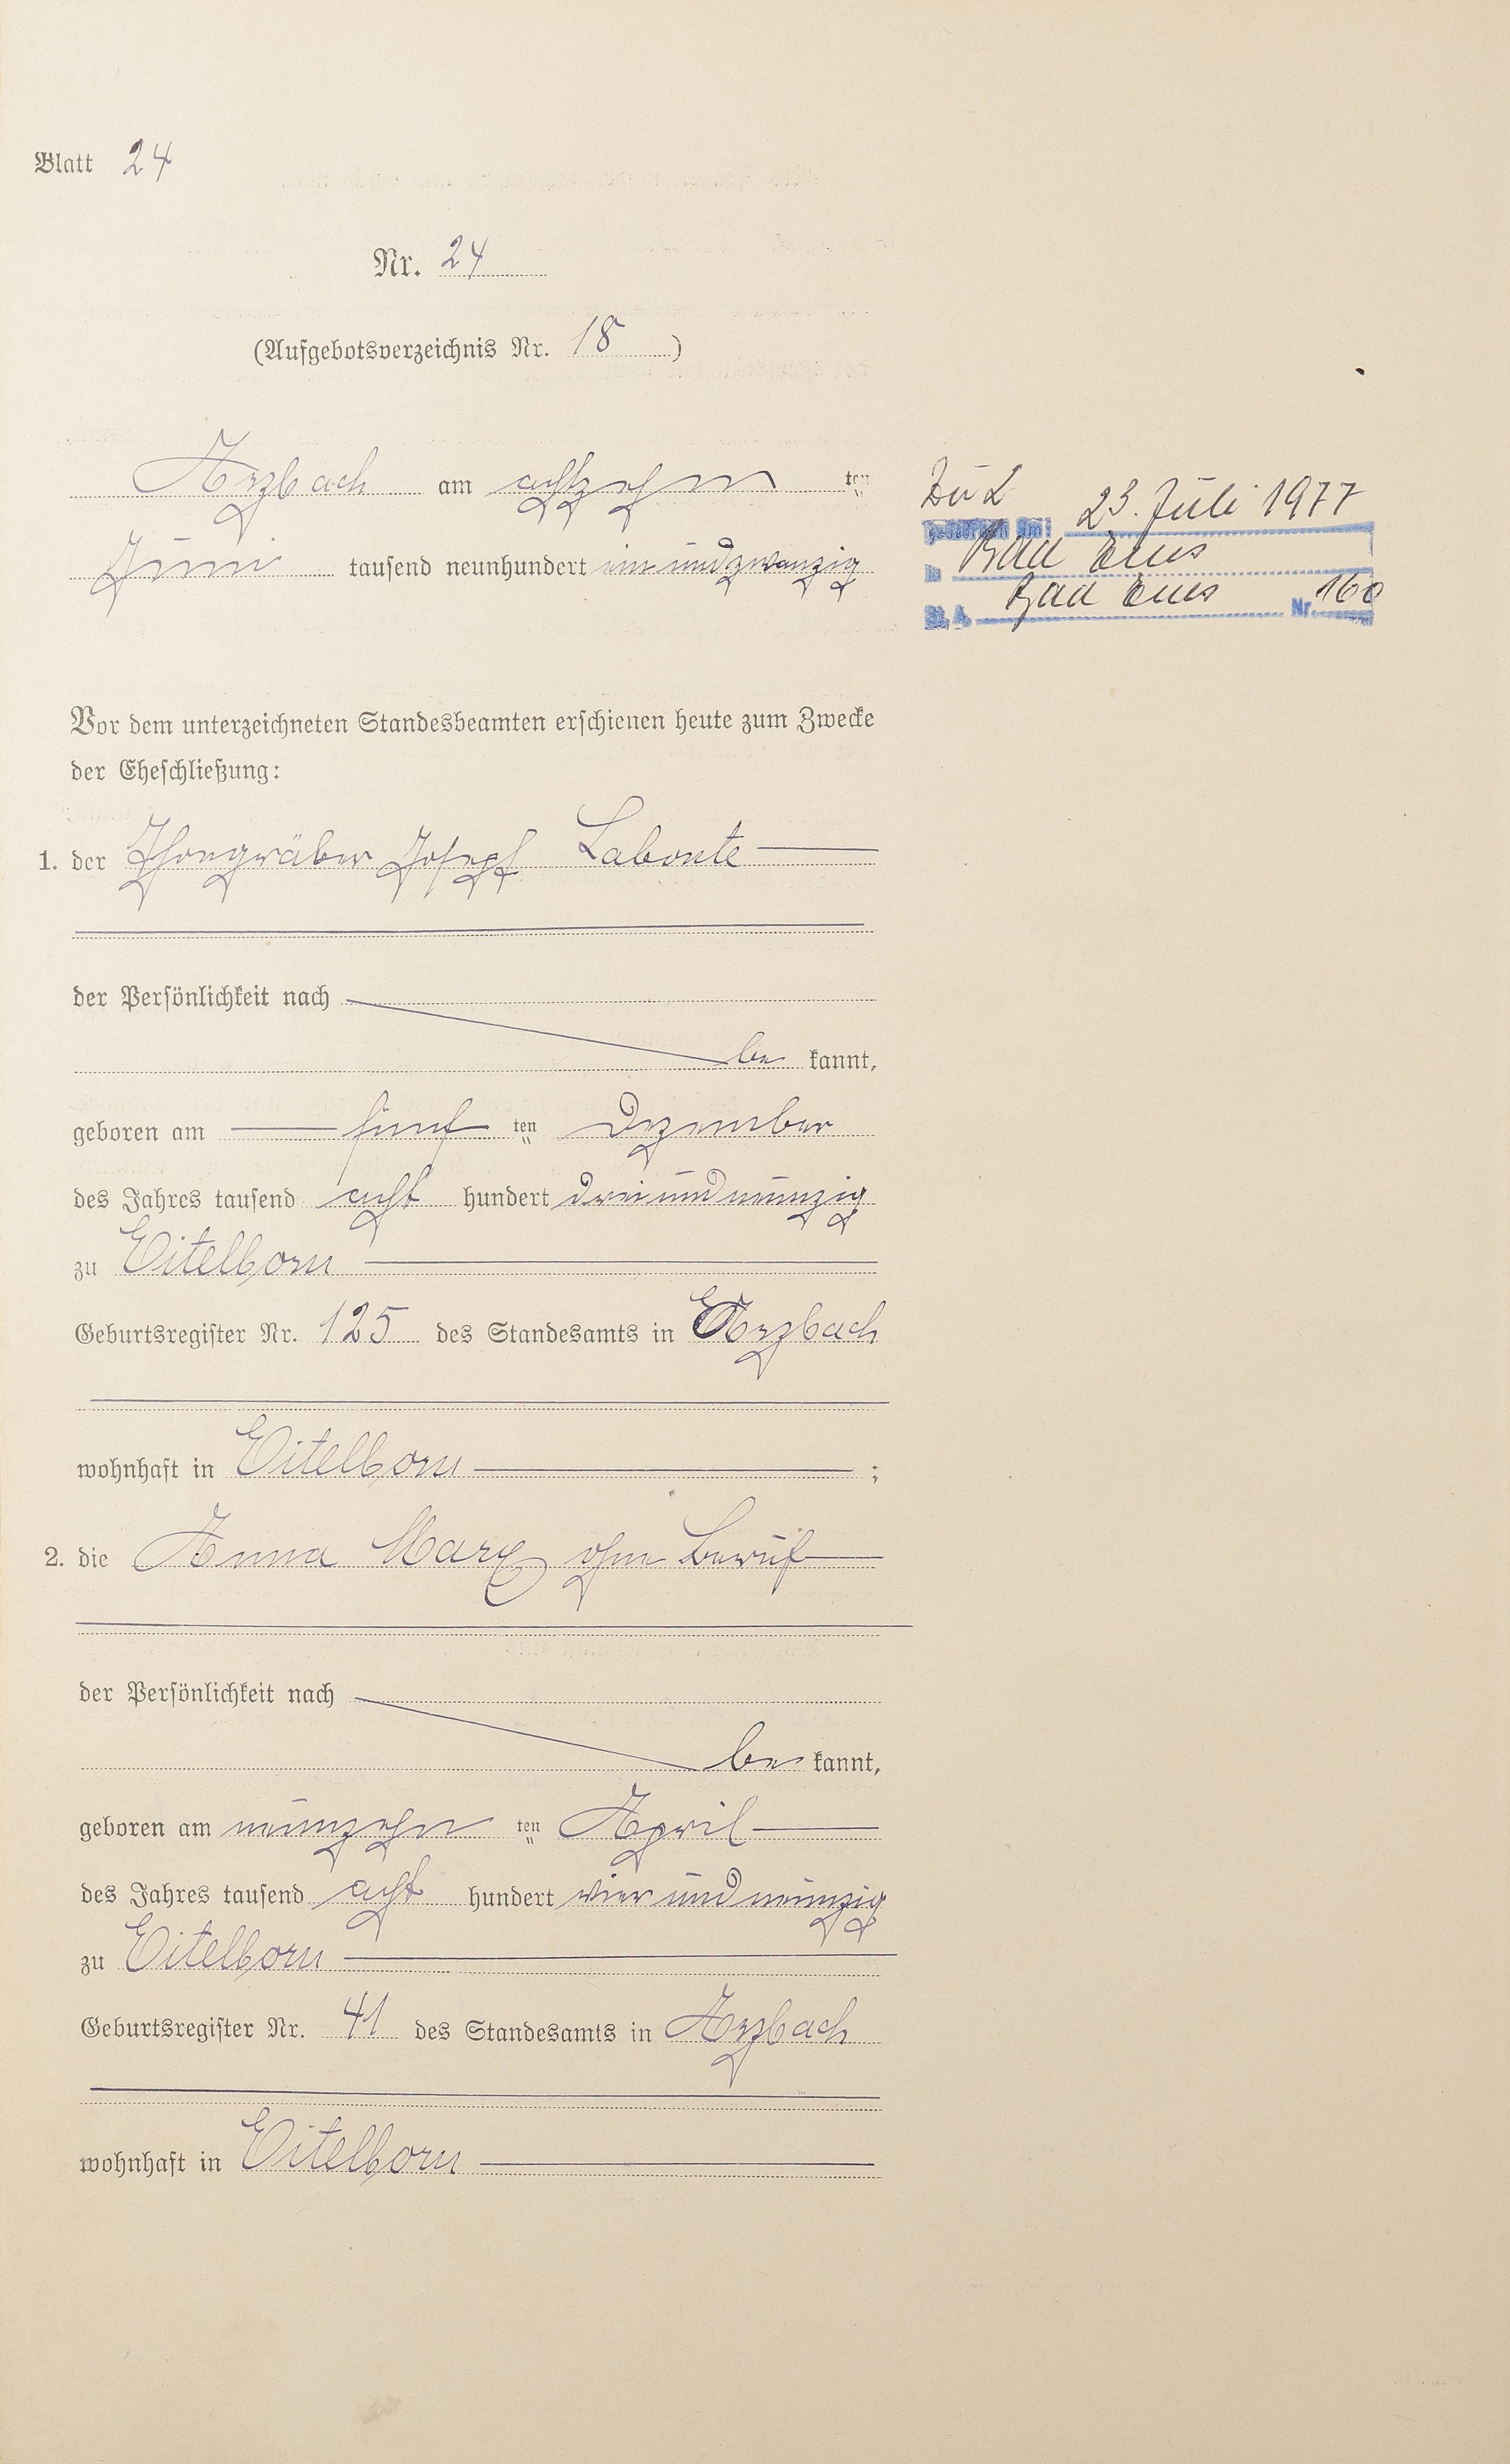 Blatt 24
Nr. 24
(Aufgebotsverzeichnis Nr. 18 )
Arzbach am achtzehn ten
Juni tausend neunhundert ein und zwanzig
Zu 2
gestorben am: 23. Juli 1977
in Bad Ems
St. A. Bad Ems Nr. 160
Vor dem unterzeichneten Standesbeamten erschienen heute zum Zwecke
der Eheschließung:
1. der Thongräber Joseph Labonte
der Persönlichkeit nach
be kannt,
geboren am fünf ten Dezember
des Jahres tausend acht hundert drei und neunzig
zu Eitelborn
Geburtsregister Nr. 125 des Standesamts in Arzbach
wohnhaft in Eitelborn ;
2. die Anna Marx ohne Beruf
der Persönlichkeit nach
be kannt,
geboren am neunzehn ten April
des Jahres tausend acht hundert vier und neunzig
zu Eitelborn
Geburtsregister Nr. 41 des Standesamts in Arzbach
wohnhaft in Eitelborn